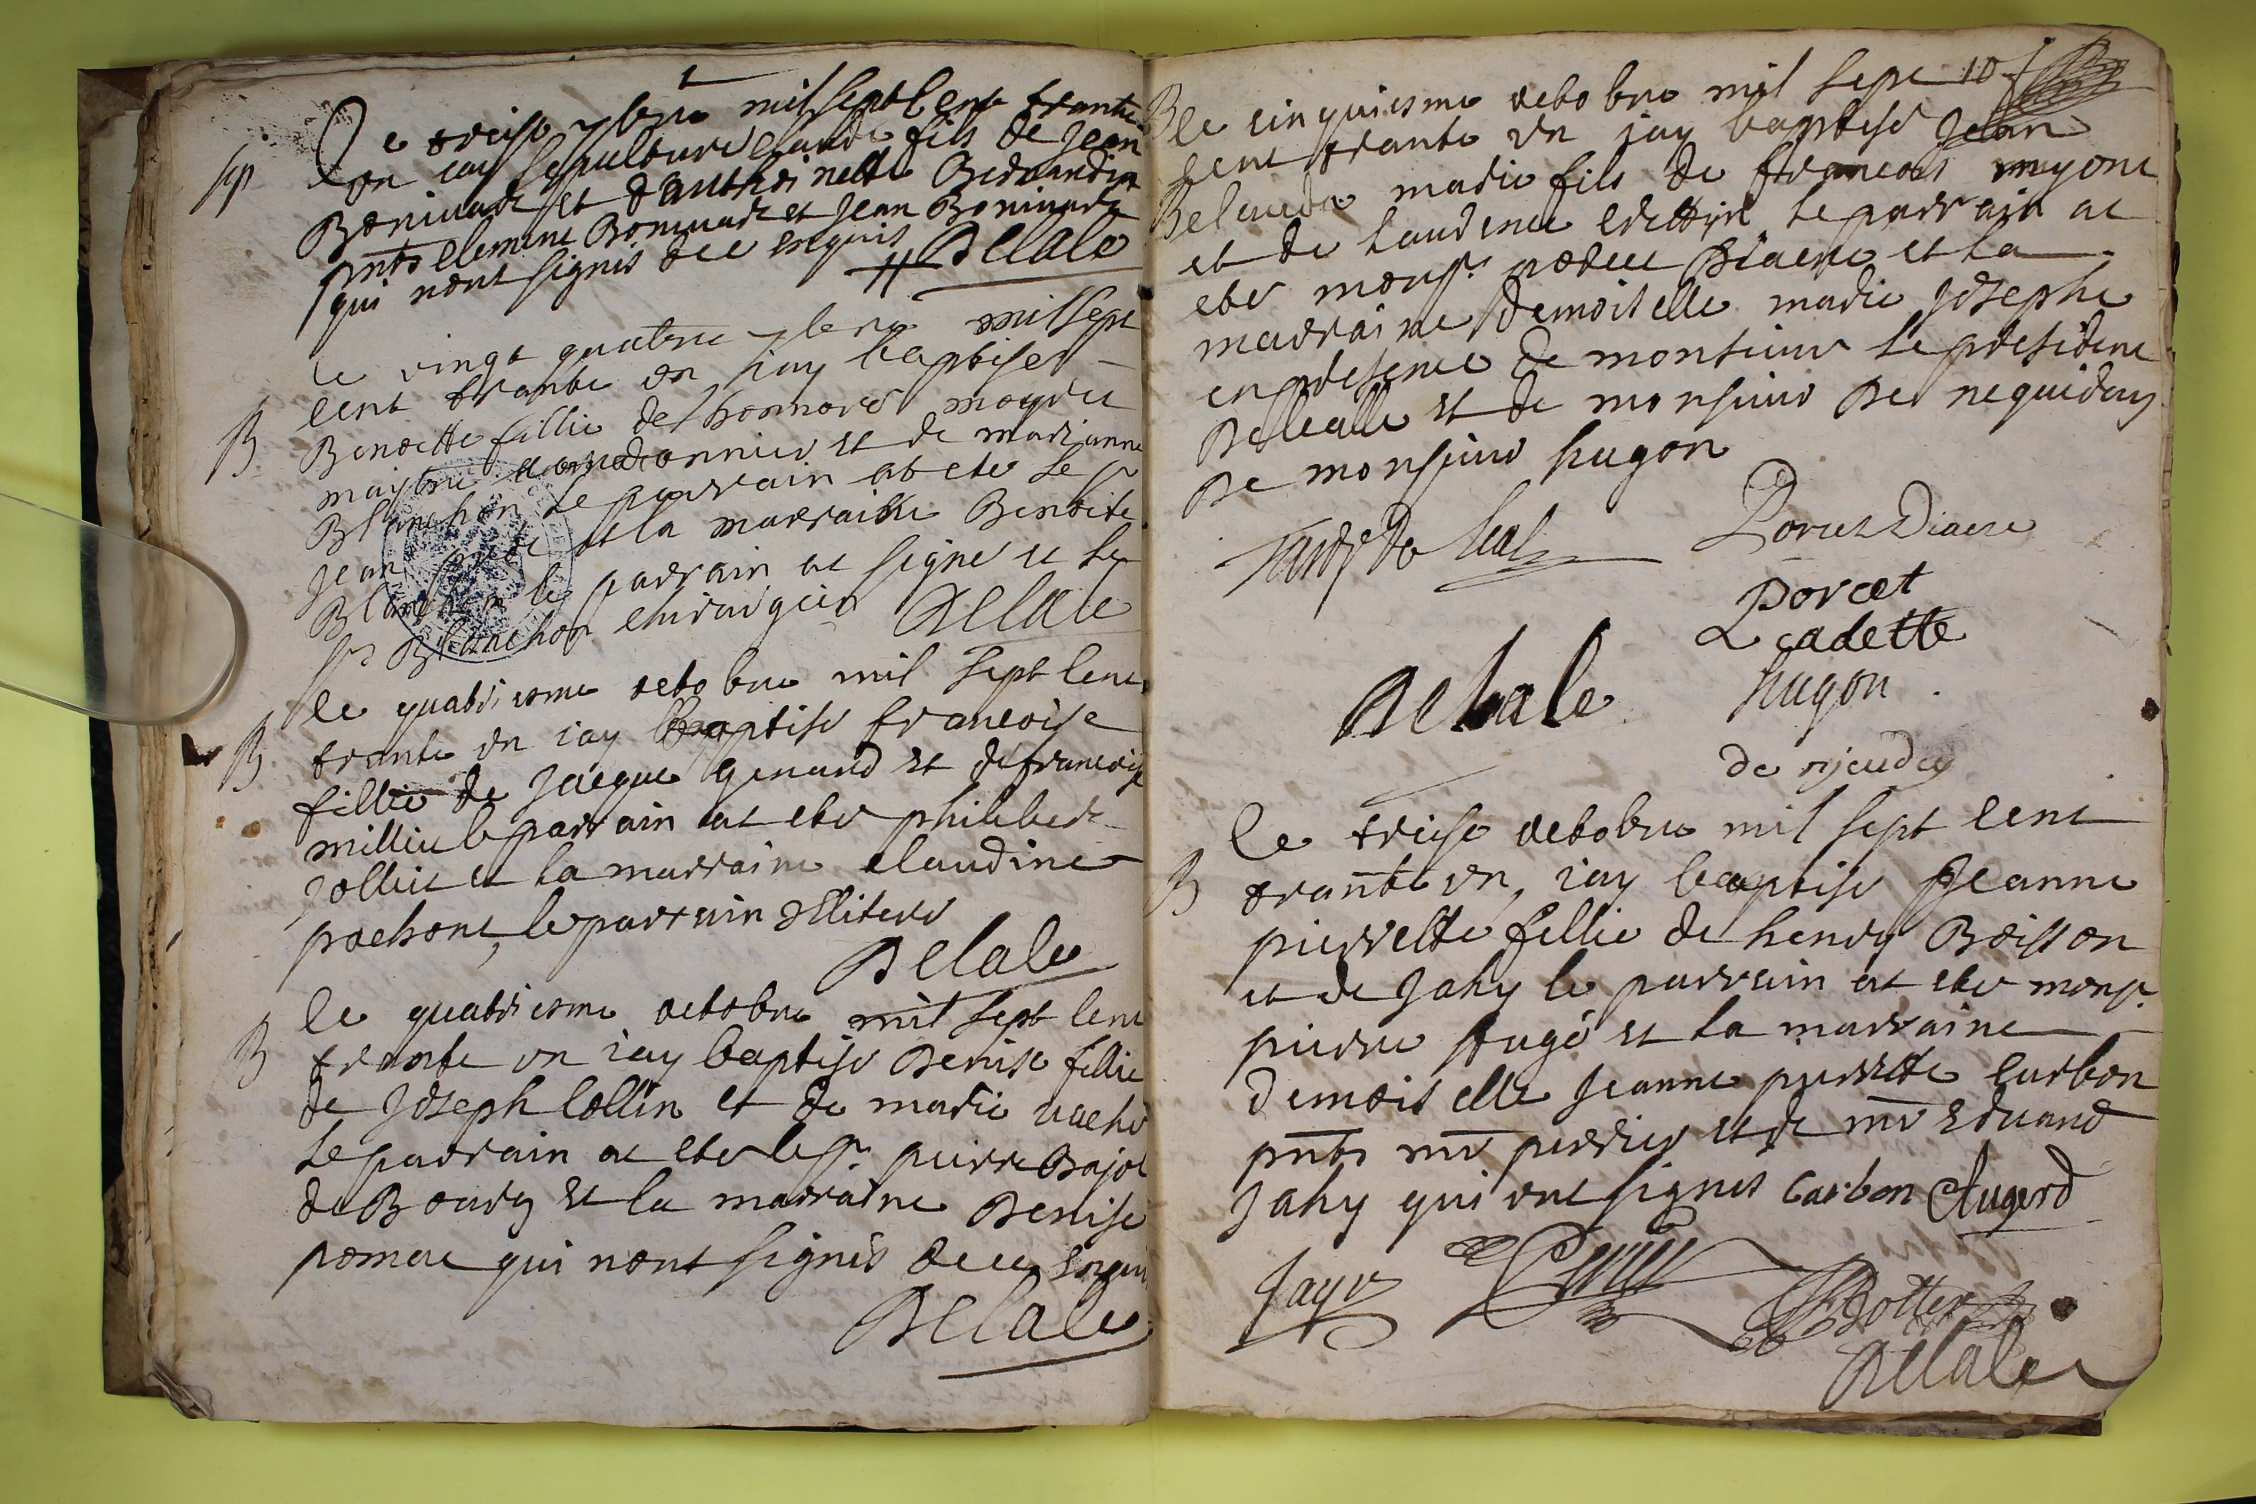 Le treise 7bre mil sept cent trante
sep
un iay sepulturé claude fils de Jean
Bonivard et danthoinette
pnts clemens Bonivard et Jean Bonivard
qui nont signés de ce enquis Delale
le vingt quatre 7bre mil sept
B
cent trante un iay baptisé
Benoette fillie de honnoré
maystre cordonnier et de marianne
Blanchon le parrain at eté le sr
Jean et la marraine Benoite
Blanchon le parrain at signé et le
sr Blanchon chirurgien Delale
le quatriesme octobre mil sept cent
B
trante un iay baptisé francoise
fillie de Jacque genand et de francoise
millie le parrain at eté philibert
jollie et la marraine claudine
pochont, le parrain illiteré
Delale
le quatriesme octobre mil sept cent
B
trante un iay baptisé Denise fillie
de Joseph Collin et de marie vaché
le parrain at eté le sr pierre Bajot
de Bourg et la marraine Denise
pomere qui nont signés de ce enquis
Delale
B le cinquiesme octobre mil sept 10
cent trante un iay baptisé Jean
claude marie fils de francois
et de laurence le parrain at
eté monsr Diacre et la
marraine demoiselle marie Josephe
en presence de monsieur le president
Deleale et de monsieur
De monsieur hugon
Diacre
Dorcet
cadette
hugon
Delale
de
Le treise octobre mil sept cent
B
trante un, iay baptisé Jeanne
pierrette fillie de henry Boisson
et de Jahy le parrain at eté monsr
pierre Augé et la marraine
demoiselle Jeanne pierrette Carbon
pnts mr perrier et de mr
Jahy qui ont signés Carbon Augerd
Jayr
Delale